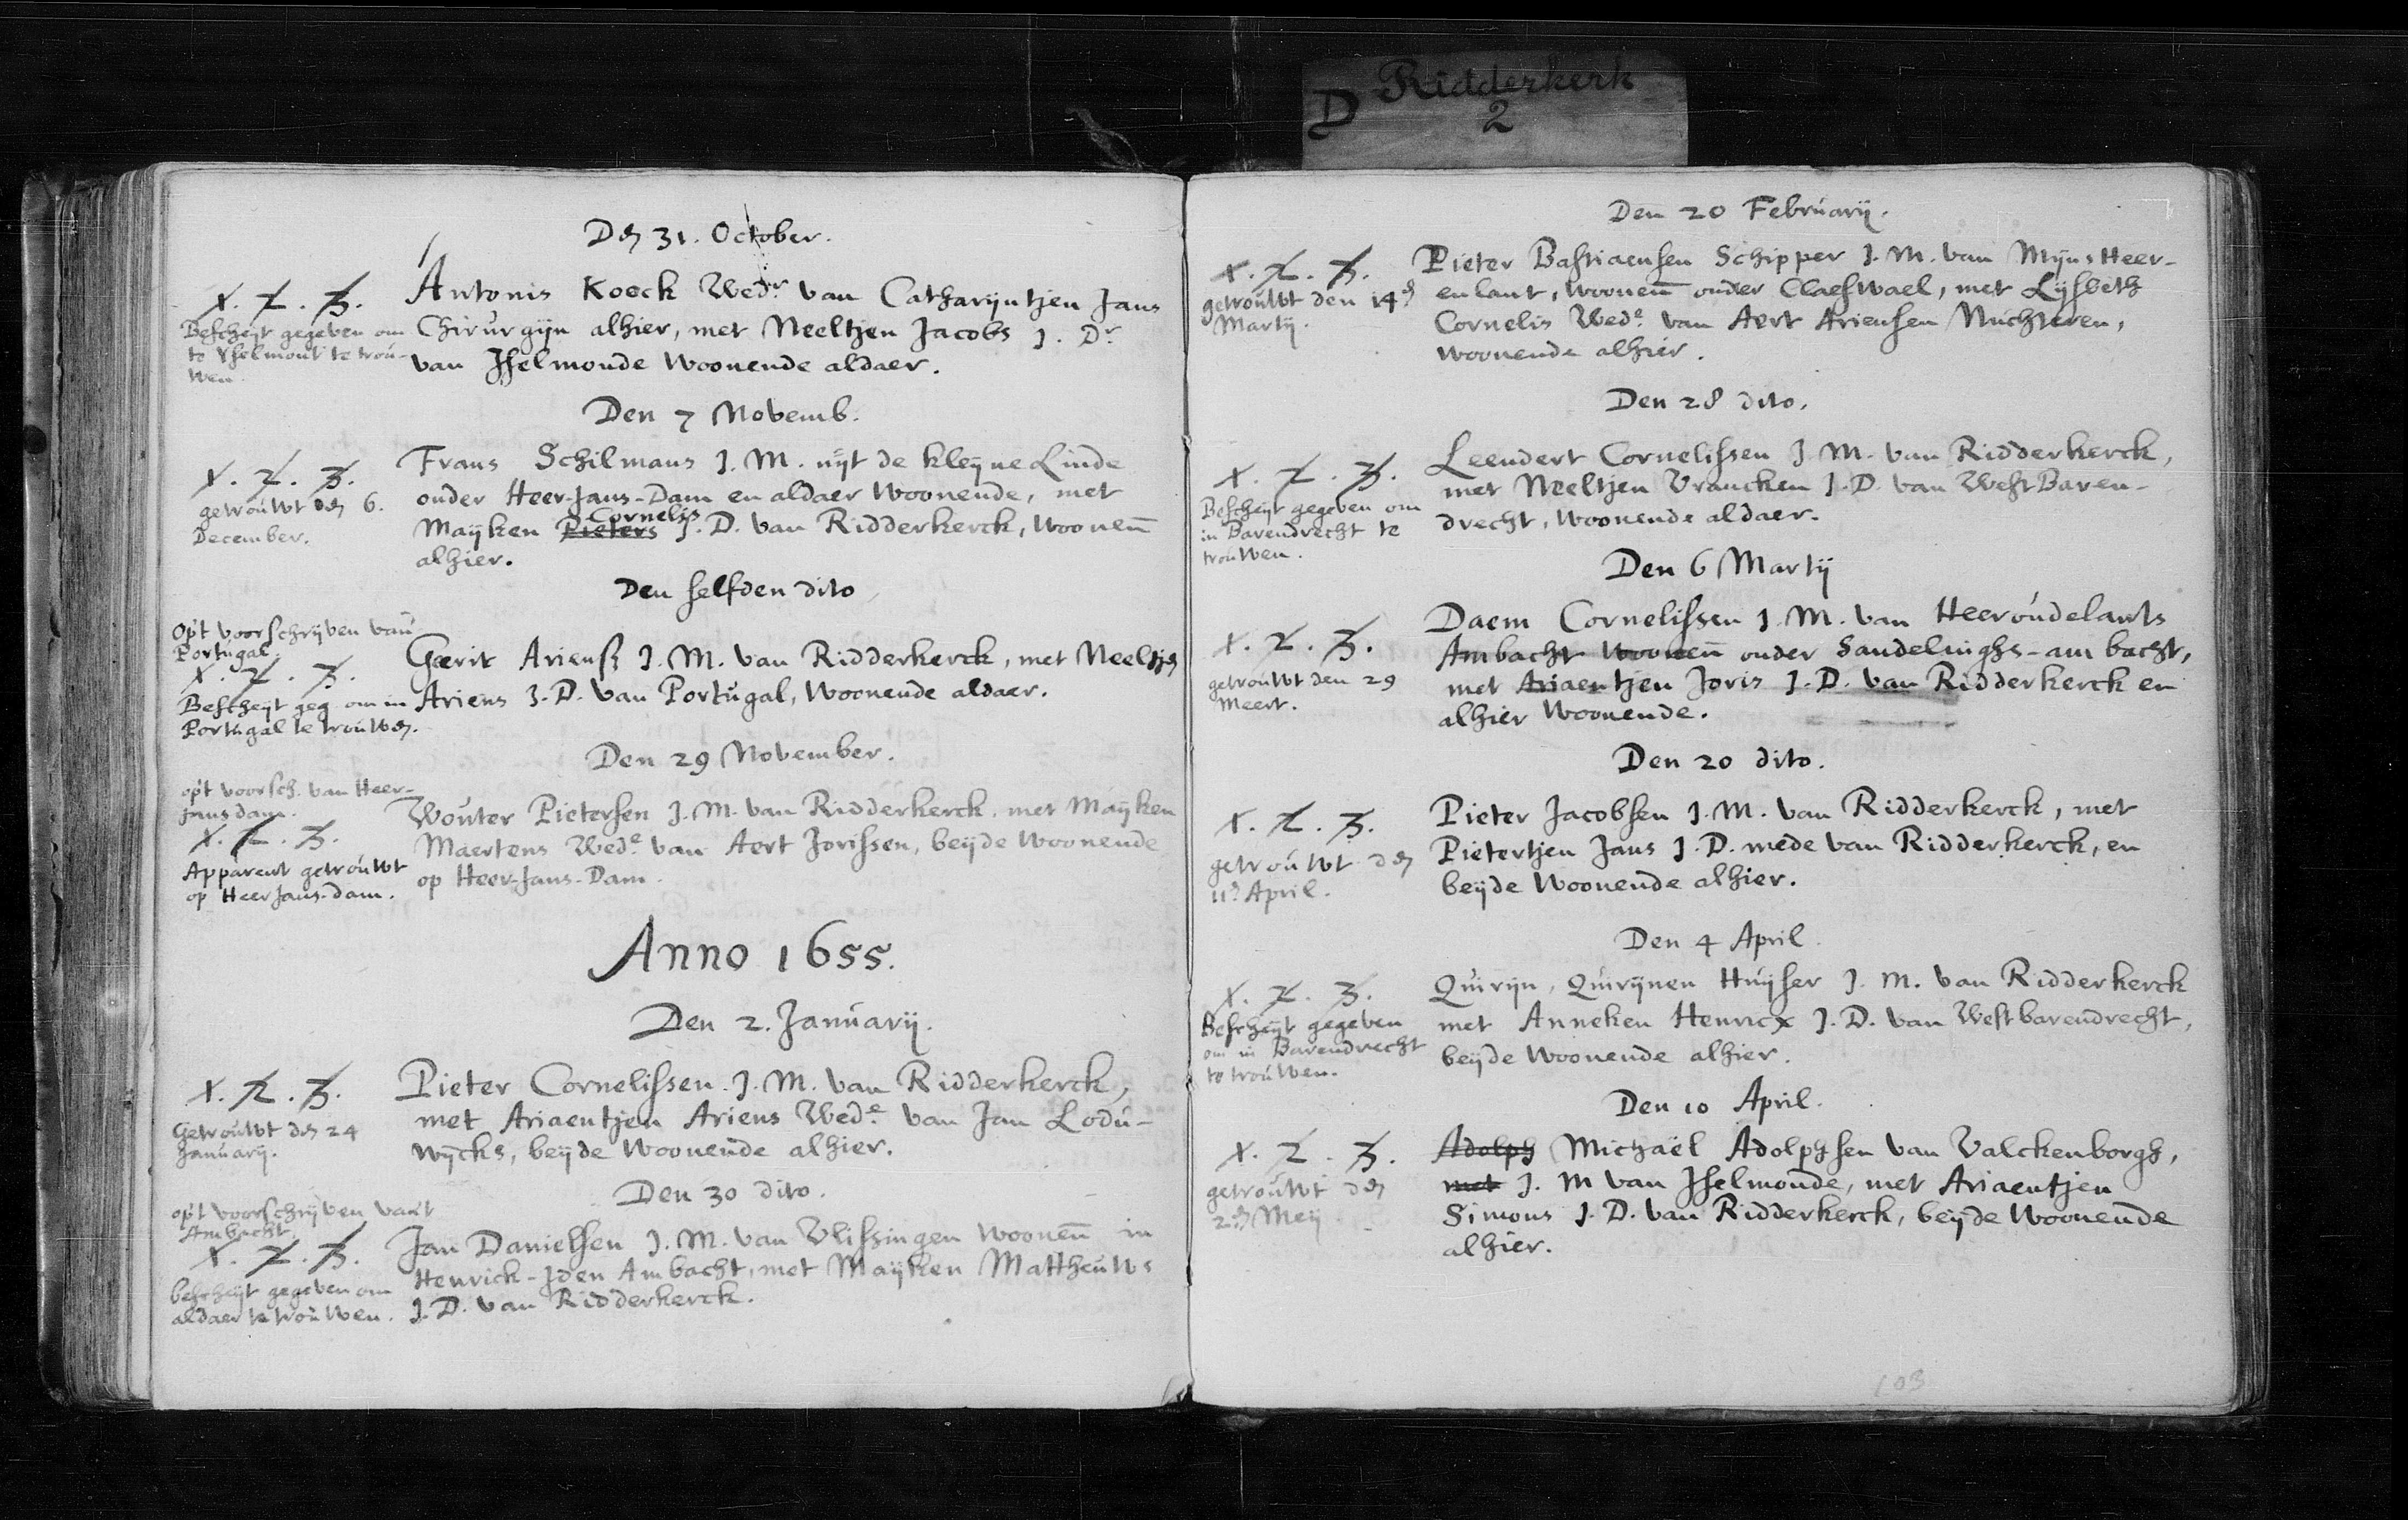 D Ridderkerk
2
Den 31. October.
1. 2. 3.
Bescheijt gegeven om
te Yselmont te trou-
wen.
Antonis Koeck Wedr. van Catharijntjen Jans
Chirurgijn alhier, met Neeltjen Jacobs J. Dr
van Jselmonde Woonende aldaer.
Den 7 Novemb.
1. 2. 3.
getrouwt den 6.
December.
Frans Schilmans J. M. uijt de kleyne Linde
onder Heer-Jans-Dam en aldaer Woonende, met
Cornelis
Mayken Pieters J. D. van Ridderkerck, Woonen̄
alhier.
Den selfden dito
Opt voorschrijven van
Portugal.
1. 2. 3.
Bescheijt geg. om in
Portugal te trouwen.
Gerit Ariens J. M. van Ridderkerck, met Neeltjen
Ariens J. D. van Portugal, Woonende aldaer.
Den 29 November.
opt voorsch. van Heer-
Jansdam.
1. 2. 3.
Apparent getrouwt
op Heer Jans-dam.
Wouter Pietersen J. M. van Ridderkerck, met Mayken
Maertens Wede. van Aert Jorissen, beyde Woonende
op Heer-Jans-Dam.
Anno 1655.
Den 2. Januarij.
1. 2. 3.
Getrouwt den 24
Januarij.
Pieter Cornelissen. J. M. van Ridderkerck,
met Ariaentjen Ariens Wede. van Jan Lodu-
wycks, beyde Woonende alhier.
Den 30 dito.
opt voorschrijven vant
Ambacht.
1. 2. 3.
bescheijt gegeven om
aldaer te trouwen.
Jan Danielsen J. M. van Vlissingen woonen̄ in
Henrick-Jden Ambacht, met Mayken Mattheuws
J. D. van Ridderkerck.
Den 20 Februarij.
1. 2. 3.
getrouwt den 14en
Martij.
Pieter Bastiaensen Schipper J. M. van Mijns Heer-
en lant, woonen̄ onder Claeswael, met Lijsbeth
Cornelis Wede. van Aert Ariensen Nuchteren,
woonende alhier.
Den 28 dito.
1. 2. 3.
Bescheijt gegeven om
in Barendrecht te
trouwen.
Leendert Cornelissen J. M. van Ridderkerck,
met Neeltjen Vrancken J. D. van West Baren-
drecht, Woonende aldaer.
Den 6 Martij
1. 2. 3.
getrouwt den 29
Meert.
Daem Cornelissen J. M. van Heeroudelants
Ambacht Woonen̄ onder Sandelinghs-ambacht,
met Ariaentjen Joris J. D. van Ridderkerck en
alhier Woonende.
Den 20 dito.
1. 2. 3.
getrouwt den
11en April.
Pieter Jacobsen J. M. van Ridderkerck, met
Pietertjen Jans J. D. mede van Ridderkerck, en
beyde Woonende alhier.
Den 4 April.
1. 2. 3.
Bescheijt gegeven
om in Barendrecht
te trouwen.
Quirijn, Quirijnen Huyser J. M. van Ridderkerck
met Anneken Henricx J. D. van Westbarendrecht,
beyde Woonende alhier.
Den 10 April.
1. 2. 3.
getrouwt den
2en Mey
Adolph Michaël Adolphsen van Valckenborgh,
met J. M van Jselmonde, met Ariaentjen
Simons J. D. van Ridderkerck, beyde Woonende
alhier.
103